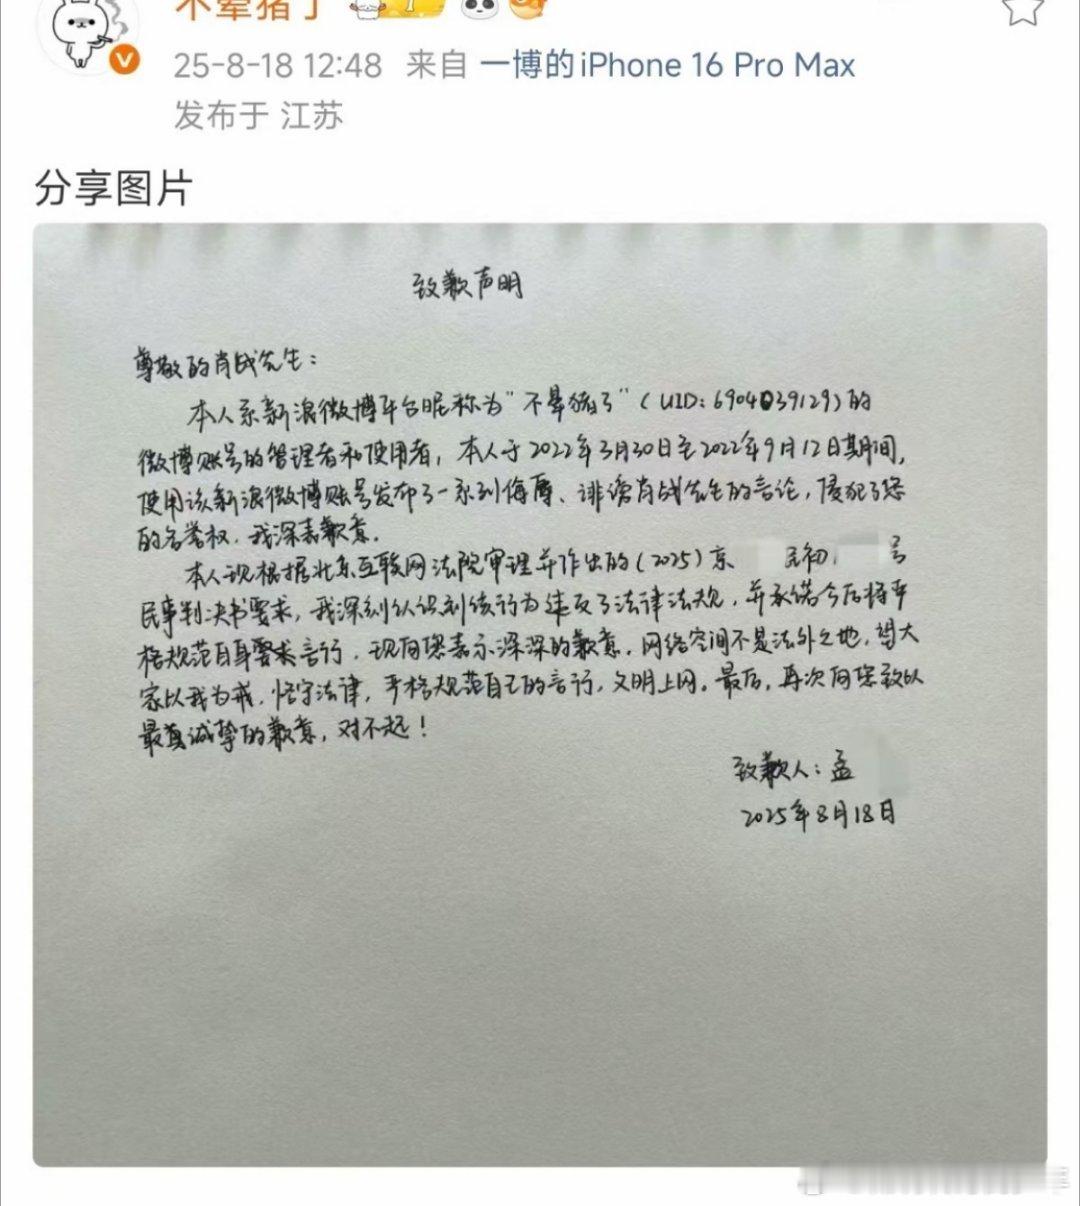 不晕猪了
25-8-18 12:48 来自 一博的iPhone 16 Pro Max
发布于 江苏
分享图片
致歉声明
尊敬的肖战先生：
本人系新浪微博平台昵称为“不晕猪了”（UID：6904039129）的
微博账号的管理者和使用者，本人于2022年3月30日至2022年9月12日期间，
使用该新浪微博账号发布了一系列侮辱、诽谤肖战先生的言论，侵犯了您
的名誉权，我深表歉意。
本人现根据北京互联网法院审理并作出的（2025）京 民初 号
民事判决书要求，我深刻认识到该行为违反了法律法规，并承诺今后将严
格规范自身要求言行，现向您表示深深的歉意。网络空间不是法外之地，望大
家以我为戒，恪守法律，严格规范自己的言行，文明上网。最后，再次向您致以
最真诚挚的歉意，对不起！
致歉人：孟
2025年8月18日